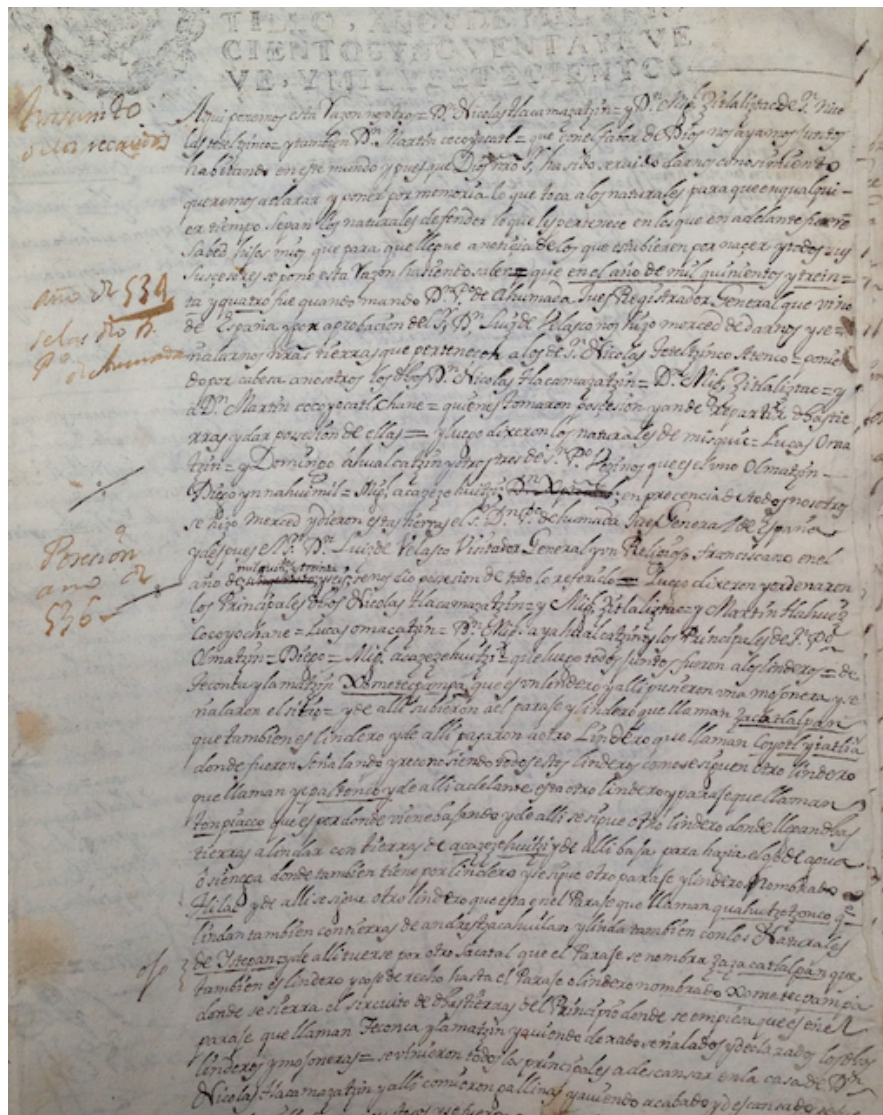 TILLO, AÑOS DE MIL SEIS
CIENTOS Y NOVENTA Y NUE
VE, Y MIL Y SETECIENTOS
trasumpto
de los recaudos
Aqui ponemos esta Razon nosotros = Dn Nicolas tlacamazatzin = y Dn Migl Zitlaliztac de Sn Nico
las tetelzinco = y tambien Dn Martin cocoyocatl = que con el fabor de Dios nos ayamos juntos
habitando en este mundo y pues que Dios nro Sr ha sido servido darnos conosimiento
queremos aclarar y poner por memoria lo que toca a los naturales para que en qualqui-
er tiempo sepan los naturales defender lo que les pertenece en los que en adelante
Sabed hijos mios que para que llegue a noticia de los que estubieren por nazer y todos sus
Suscesores se pone esta Razon hasiendo saber = que en el año de mil quinientos y trein=
ta y quatro fue quando mando Dn Po de Ahumada Juez Registrador General que vino
de España y por aprobacion del Sr Dn Luiz de Velasco nos hizo merced de darnos y se=
ñalarnos nras tierras que pertenesen a los de Sn Nicolas teteltzinco Atenco = ponien
do por cabesa a nosotros los dhos Dn Nicolas tlacamazatzin = Dn Migl Zitlaliztac = y
a Dn Martin cocoyocatl chane = quienes tomaron posesion y an de repartir dhas tie
rras y dar posesion de ellas = y luego dixeron los naturales de misquic = Lucas Oma
tzin = y Domingo ahualcatzin y otros tres de Sn Po Olmatzin -
Diego yn nahuimil = Migl acazezohuitzi en precencia de todos nosotros
se hizo merced y dieron estas tierras el Sr Dn Po de humada Juez General de España
y despues el Sr Dn Luiz de Velasco Vissitador General y vn Religioso Franciscano en el
año de mil quinientos y treinta y seis se nos dio posesion de todo lo referido = Luego dixeron y ordenaron
los Principales dhos Nicolas tlacamazatzin = y Migl Zitlaliztac = y Martin
Cocoyochane = Lucas omacatzin = Dn Migl ahualcatzin y los Principales de Sn Po
Olmatzin = Diego = Migl acazezehuitzi = que luego todos juntos fueron a los linderos = de
teconcaylamatzin Xometecpampa que es vn lindero y alli pusieron vna mojonera y se
ñalaron el sitio = y de alli subieron al paraje y lindero que llaman zacatlalpan
que tambien es lindero y de alli pasaron a otro Lindero que llaman Coyotlytatlia
donde fueron señalando y reconosiendo todos estos linderos como se siguen otro lindero
que llaman y de alli adelante esta otro lindero y paraje que llaman
tonpiacco que es por donde viene bajando y de alli se sigue otro lindero donde llegan dhas
tierras a lindar con tierras de acazezehuitzi y de alli baja para hazia el ojo de agua
o sienega donde tambien tiene por lindero y se sigue otro paraje y lindero Nombrado
Hilac y de alli se sigue otro lindero que esta en el Paraje que llaman quahutzotzonco qe
lindan tambien con tierras de andres tzacahuitlan y linda tambien con los Naturales
de Istepan y de alli tuerse por otro sacatal que el Paraje se nombra zazacatlalpan que
tambien es lindero y coje derecho hasta el Paraje o lindero nombrado Xometecpampa
donde se sierra el sircuito de dhas tierras del Principio donde se empiesa que es en el
paraje que llaman Teconca ylamatzin y aviendo dexado señalados y declarados los dhos
linderos y mojoneras = se vinieron todos los principales a descansar en la casa de Dn
Nicolas tlacamazatzin y alli comieron gallinas y aviendo acabado y descansado
año de 534
se las dio Dn
Po de Ahumada
Posecion
año de
536
ojo